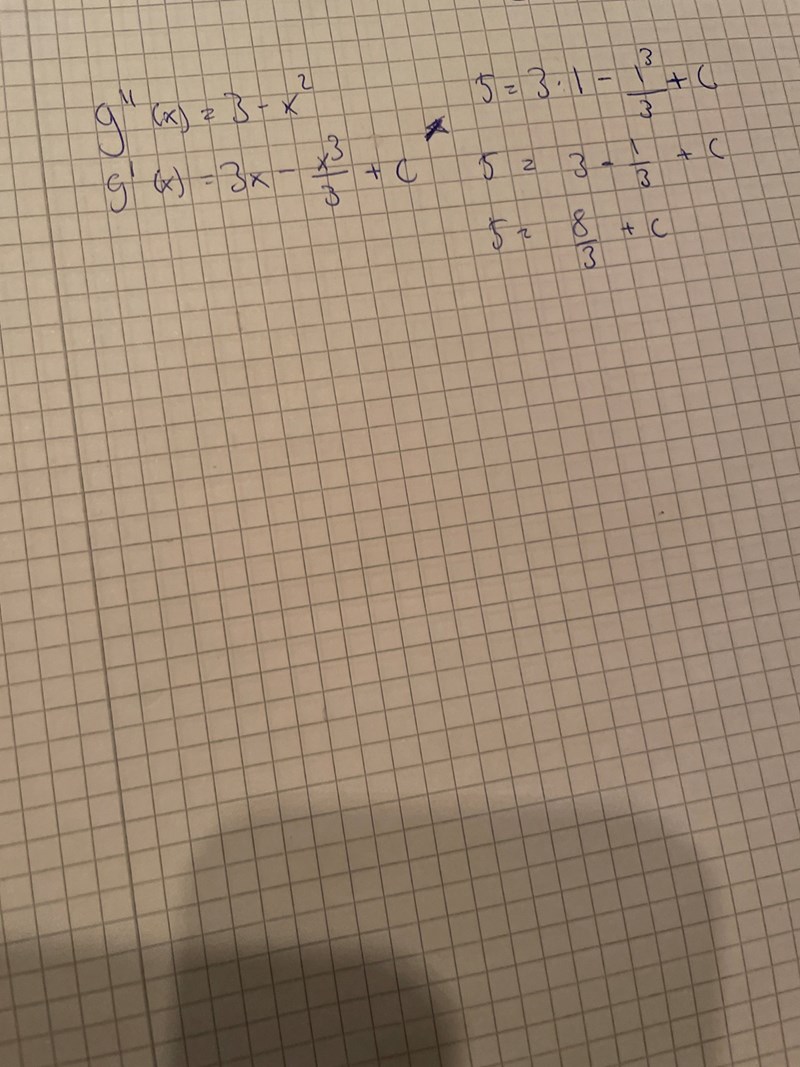 g''(x) = 3 - x²
g'(x) = 3x - x³/3 + C
5 = 3·1 - 1³/3 + C
5 = 3 - 1/3 + C
5 = 8/3 + C